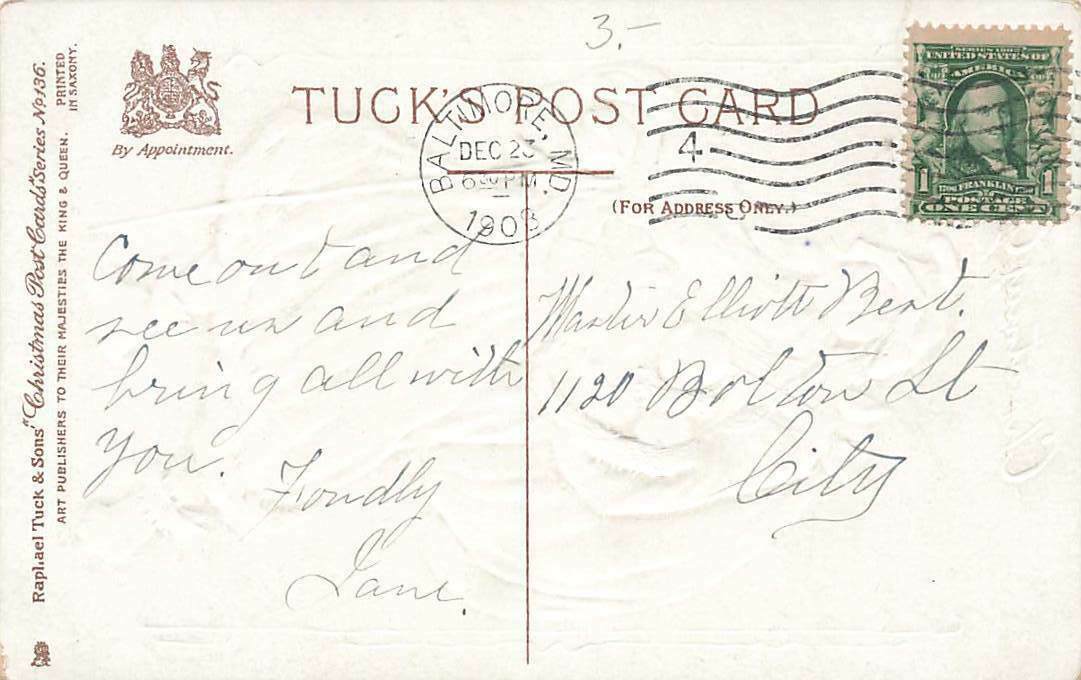 3.-
TUCK'S POST CARD
By Appointment.
(FOR ADDRESS ONLY.)
BALTIMORE, MD.
DEC 23
6 PM
1908
4
SERIES 1902
UNITED STATES OF
AMERICA
1 FRANKLIN 1
POSTAGE
ONE CENT
Raphael Tuck & Sons' "Christmas Post Cards" Series No 136.
PRINTED
IN SAXONY.
ART PUBLISHERS TO THEIR MAJESTIES THE KING & QUEEN.
Come out and
see us and
bring all with
you.
Fondly
Jane.
Master Elliott Bent.
1120 Bolton St
City